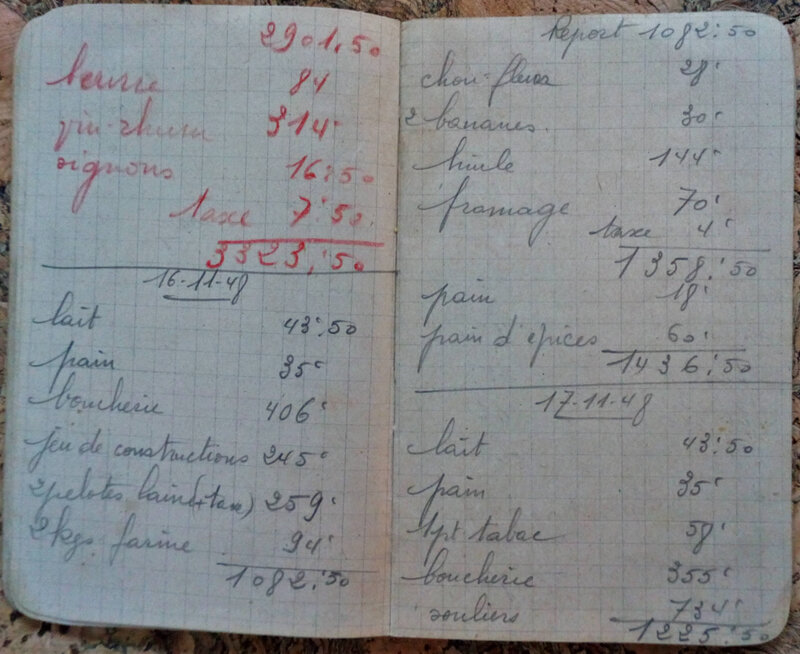 2901.50
beurre 84
vin-rhum 314
oignons 16:50
taxe 7:50
3323:50
16-11-48
lait 43:50
pain 35
boucherie 406
jeu de constructions 245
2 pelotes laine (+ taxe) 259
2 kgs farine 94
1082:50
Report 1082:50
chou-fleur 28
2 bananes 30
huile 144
fromage 70
taxe 4
1358:50
pain 18
pain d'épices 60
1436:50
17-11-48
lait 43:50
pain 35
1 pt tabac 58
boucherie 355
souliers 734
1225:50